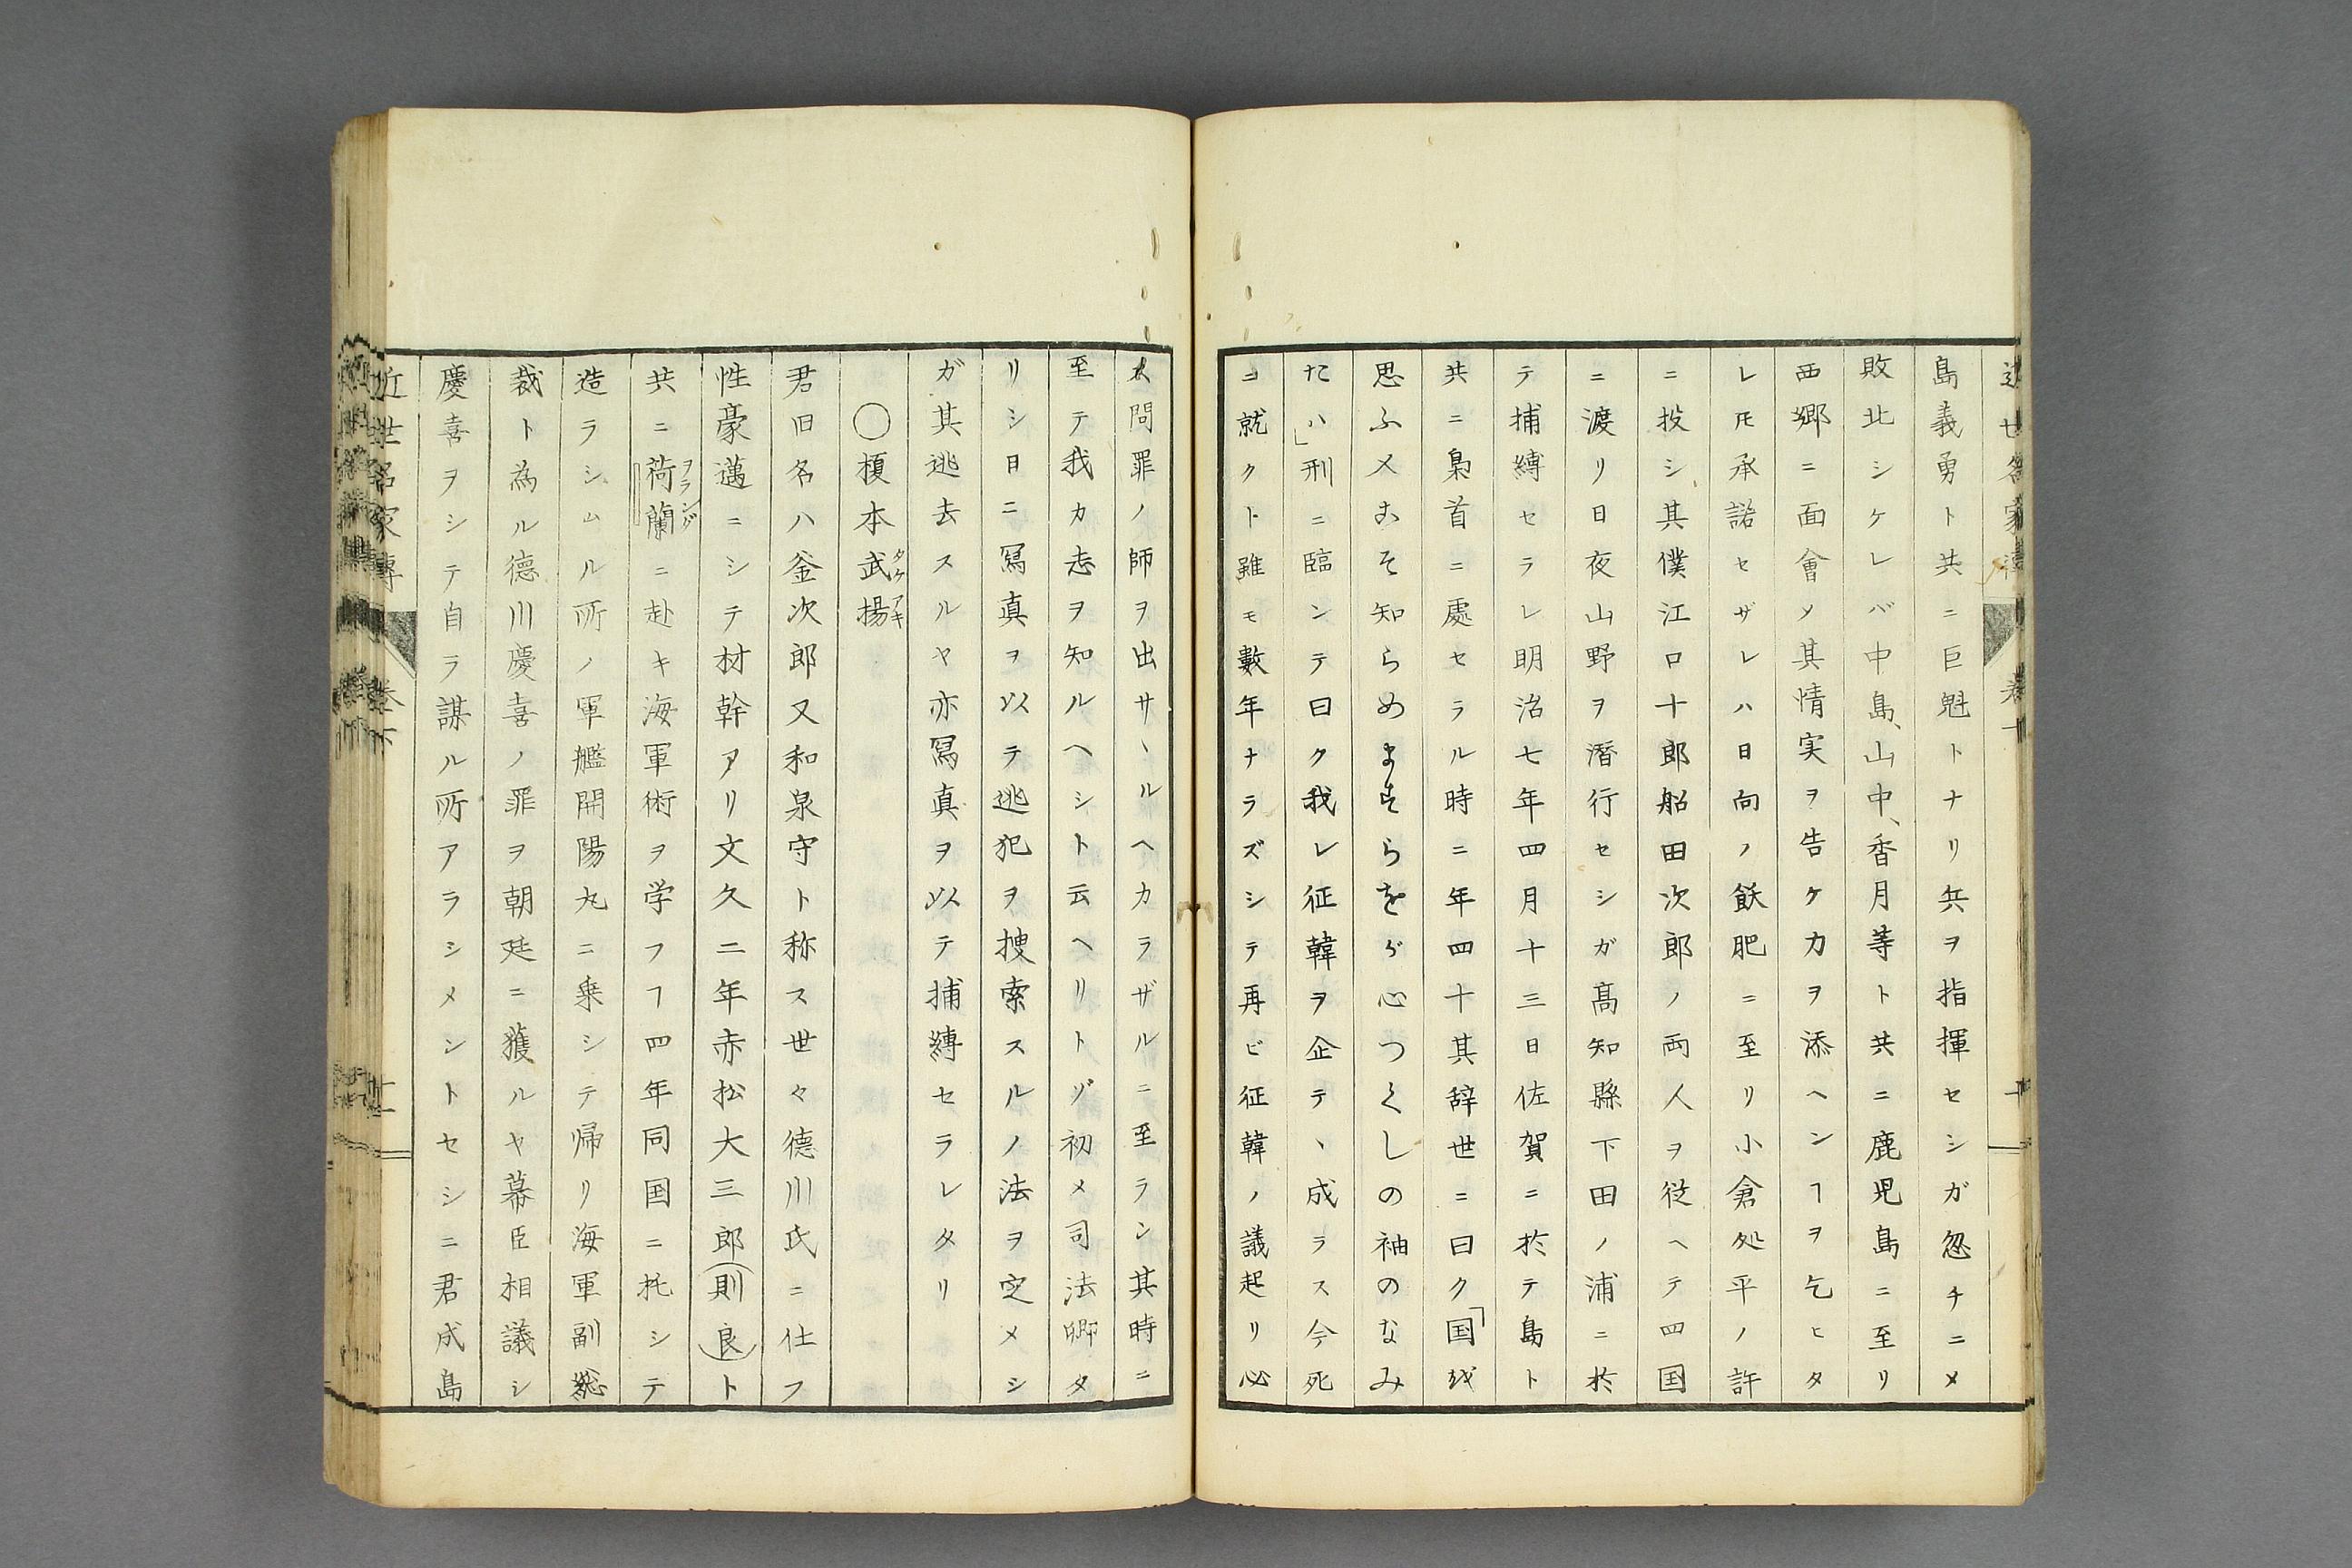 島義勇ト共ニ巨魁トナリ兵ヲ指揮セシガ忽チニメ
敗北シケレバ中島、山中、香月等ト共ニ鹿児島ニ至リ
西郷ニ面會メ其情実ヲ告ケカヲ添ヘンヿヲ乞ヒタ
レ𪜈承諾セザレハ日向ノ飫肥ニ至リ小倉処平ノ許
ニ投シ其僕江口十郎船田次郎ノ両人ヲ従ヘテ四国
ニ渡リ日夜山野ヲ潜行セシガ髙知縣下田ノ浦ニ於
テ捕縛セラレ明治七年四月十三日佐賀ニ於テ島ト
共ニ梟首ニ處セラル時ニ年四十其辞世ニ曰ク「国を
思ふ人こそ知らめますらをが心つくしの袖のなみ
だハ」刑ニ臨ンテ曰ク我レ征韓ヲ企テヽ成ラス今死
ニ就クト雖モ數年ナラズシテ再ビ征韓ノ議起リ必
ス問罪ノ師ヲ出サヽルヘカラザルニ至ラン其時ニ
至テ我カ志ヲ知ルヘシト云ヘリトゾ初メ司法卿タ
リシ日ニ冩真ヲ以テ逃犯ヲ捜索スルノ法ヲ定メシ
ガ其逃去スルヤ亦冩真ヲ以テ捕縛セラレタリ
〇榎本武揚タケアキ
君旧名ハ釜次郎又和泉守ト称ス世々德川氏ニ仕フ
性豪邁ニシテ材幹アリ文久二年赤松大三郎(則良)ト
共ニ荷蘭ヲランダニ赴キ海軍術ヲ学フヿ四年同国ニ托シテ
造ラシムル所ノ軍艦開陽丸ニ乗シテ帰リ海軍副総
裁ト為ル德川慶喜ノ罪ヲ朝廷ニ獲ルヤ幕臣相議シ
慶喜ヲシテ自ラ謀ル所アラシメントセシニ君成島
近世名家傳 巻下 廿一